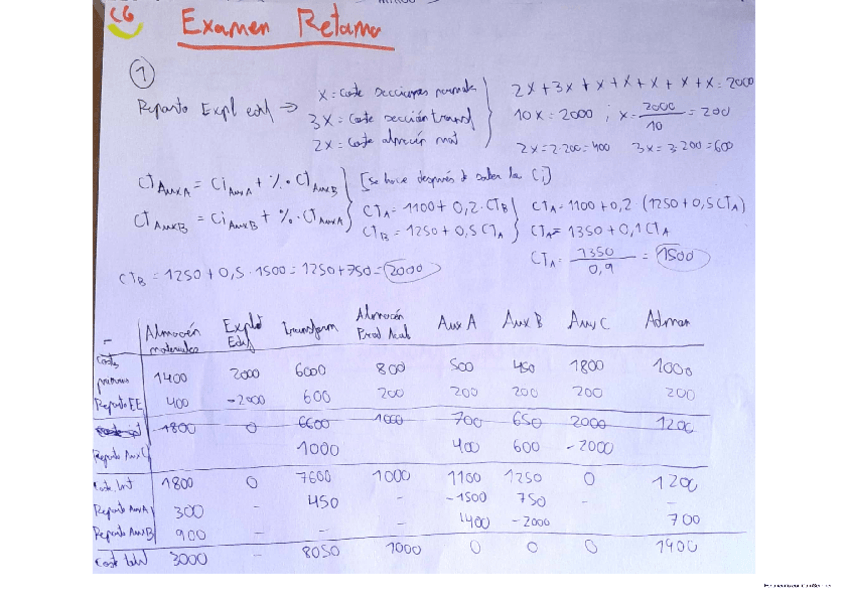 C6 Examen Retama
①
Reparto Expl edif → x = Coste secciones normales
3x = Coste sección transf
2x = Coste almacén mat
2x + 3x + x + x + x + x + x = 2000
10x = 2000 ; x = 2000/10 = 200
2x = 2·200 = 400 3x = 3·200 = 600
CT Aux A = Ci Aux A + %·CT Aux B
CT Aux B = Ci Aux B + %·CT Aux A
[se hace después d saber la Ci]
CTA = 1100 + 0,2·CTB
CTB = 1250 + 0,5 CTA
CTA = 1100 + 0,2 (1250 + 0,5 CTA)
CTA = 1350 + 0,1 CTA
CTA = 1350/0,9 = 1500
CTB = 1250 + 0,5·1500 = 1250 + 750 = 2000
- Almacén materiales Explot Edif Transform Almacén Prod Acab Aux A Aux B Aux C Admon
Costes primarios 1400 2000 6000 800 500 450 1800 1000
Reparto EE 400 -2000 600 200 200 200 200 200
1800 0 6600 1000 700 650 2000 1200
Reparto Aux C 1000 400 600 -2000
Coste Int 1800 0 7600 1000 1100 1250 0 1200
Reparto Aux A 300 - 450 - -1500 750 - -
Reparto Aux B 900 - - - 1400 -2000 700
Coste total 3000 - 8050 1000 0 0 0 1900